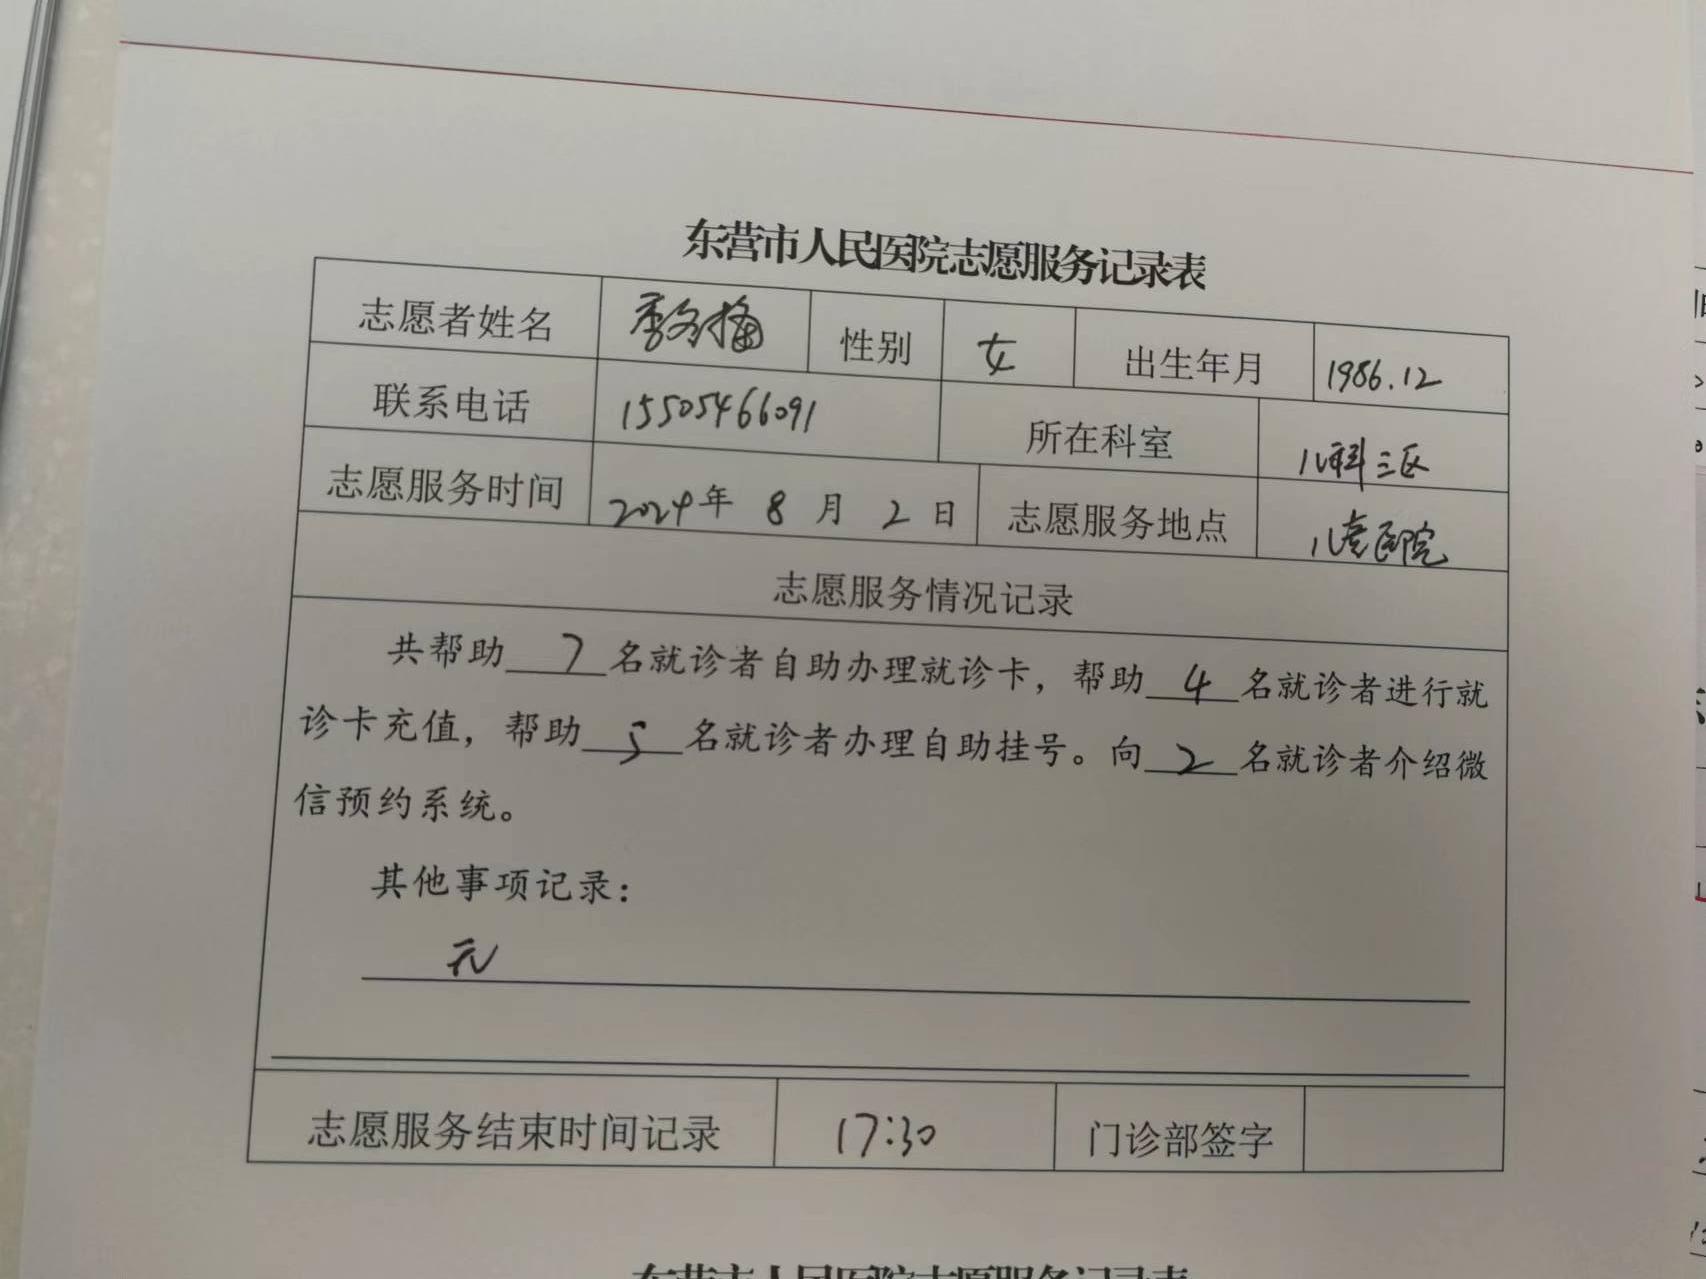 东营市人民医院志愿服务记录表
志愿者姓名 性别 女 出生年月 1986.12
联系电话 15505466091 所在科室 儿科三区
志愿服务时间 2024年 8 月 2 日 志愿服务地点 儿童医院
志愿服务情况记录
共帮助 7 名就诊者自助办理就诊卡，帮助 4 名就诊者进行就
诊卡充值，帮助 5 名就诊者办理自助挂号。向 2 名就诊者介绍微
信预约系统。
其他事项记录：
无
志愿服务结束时间记录 17:30 门诊部签字
东营市人民医院志愿服务记录表